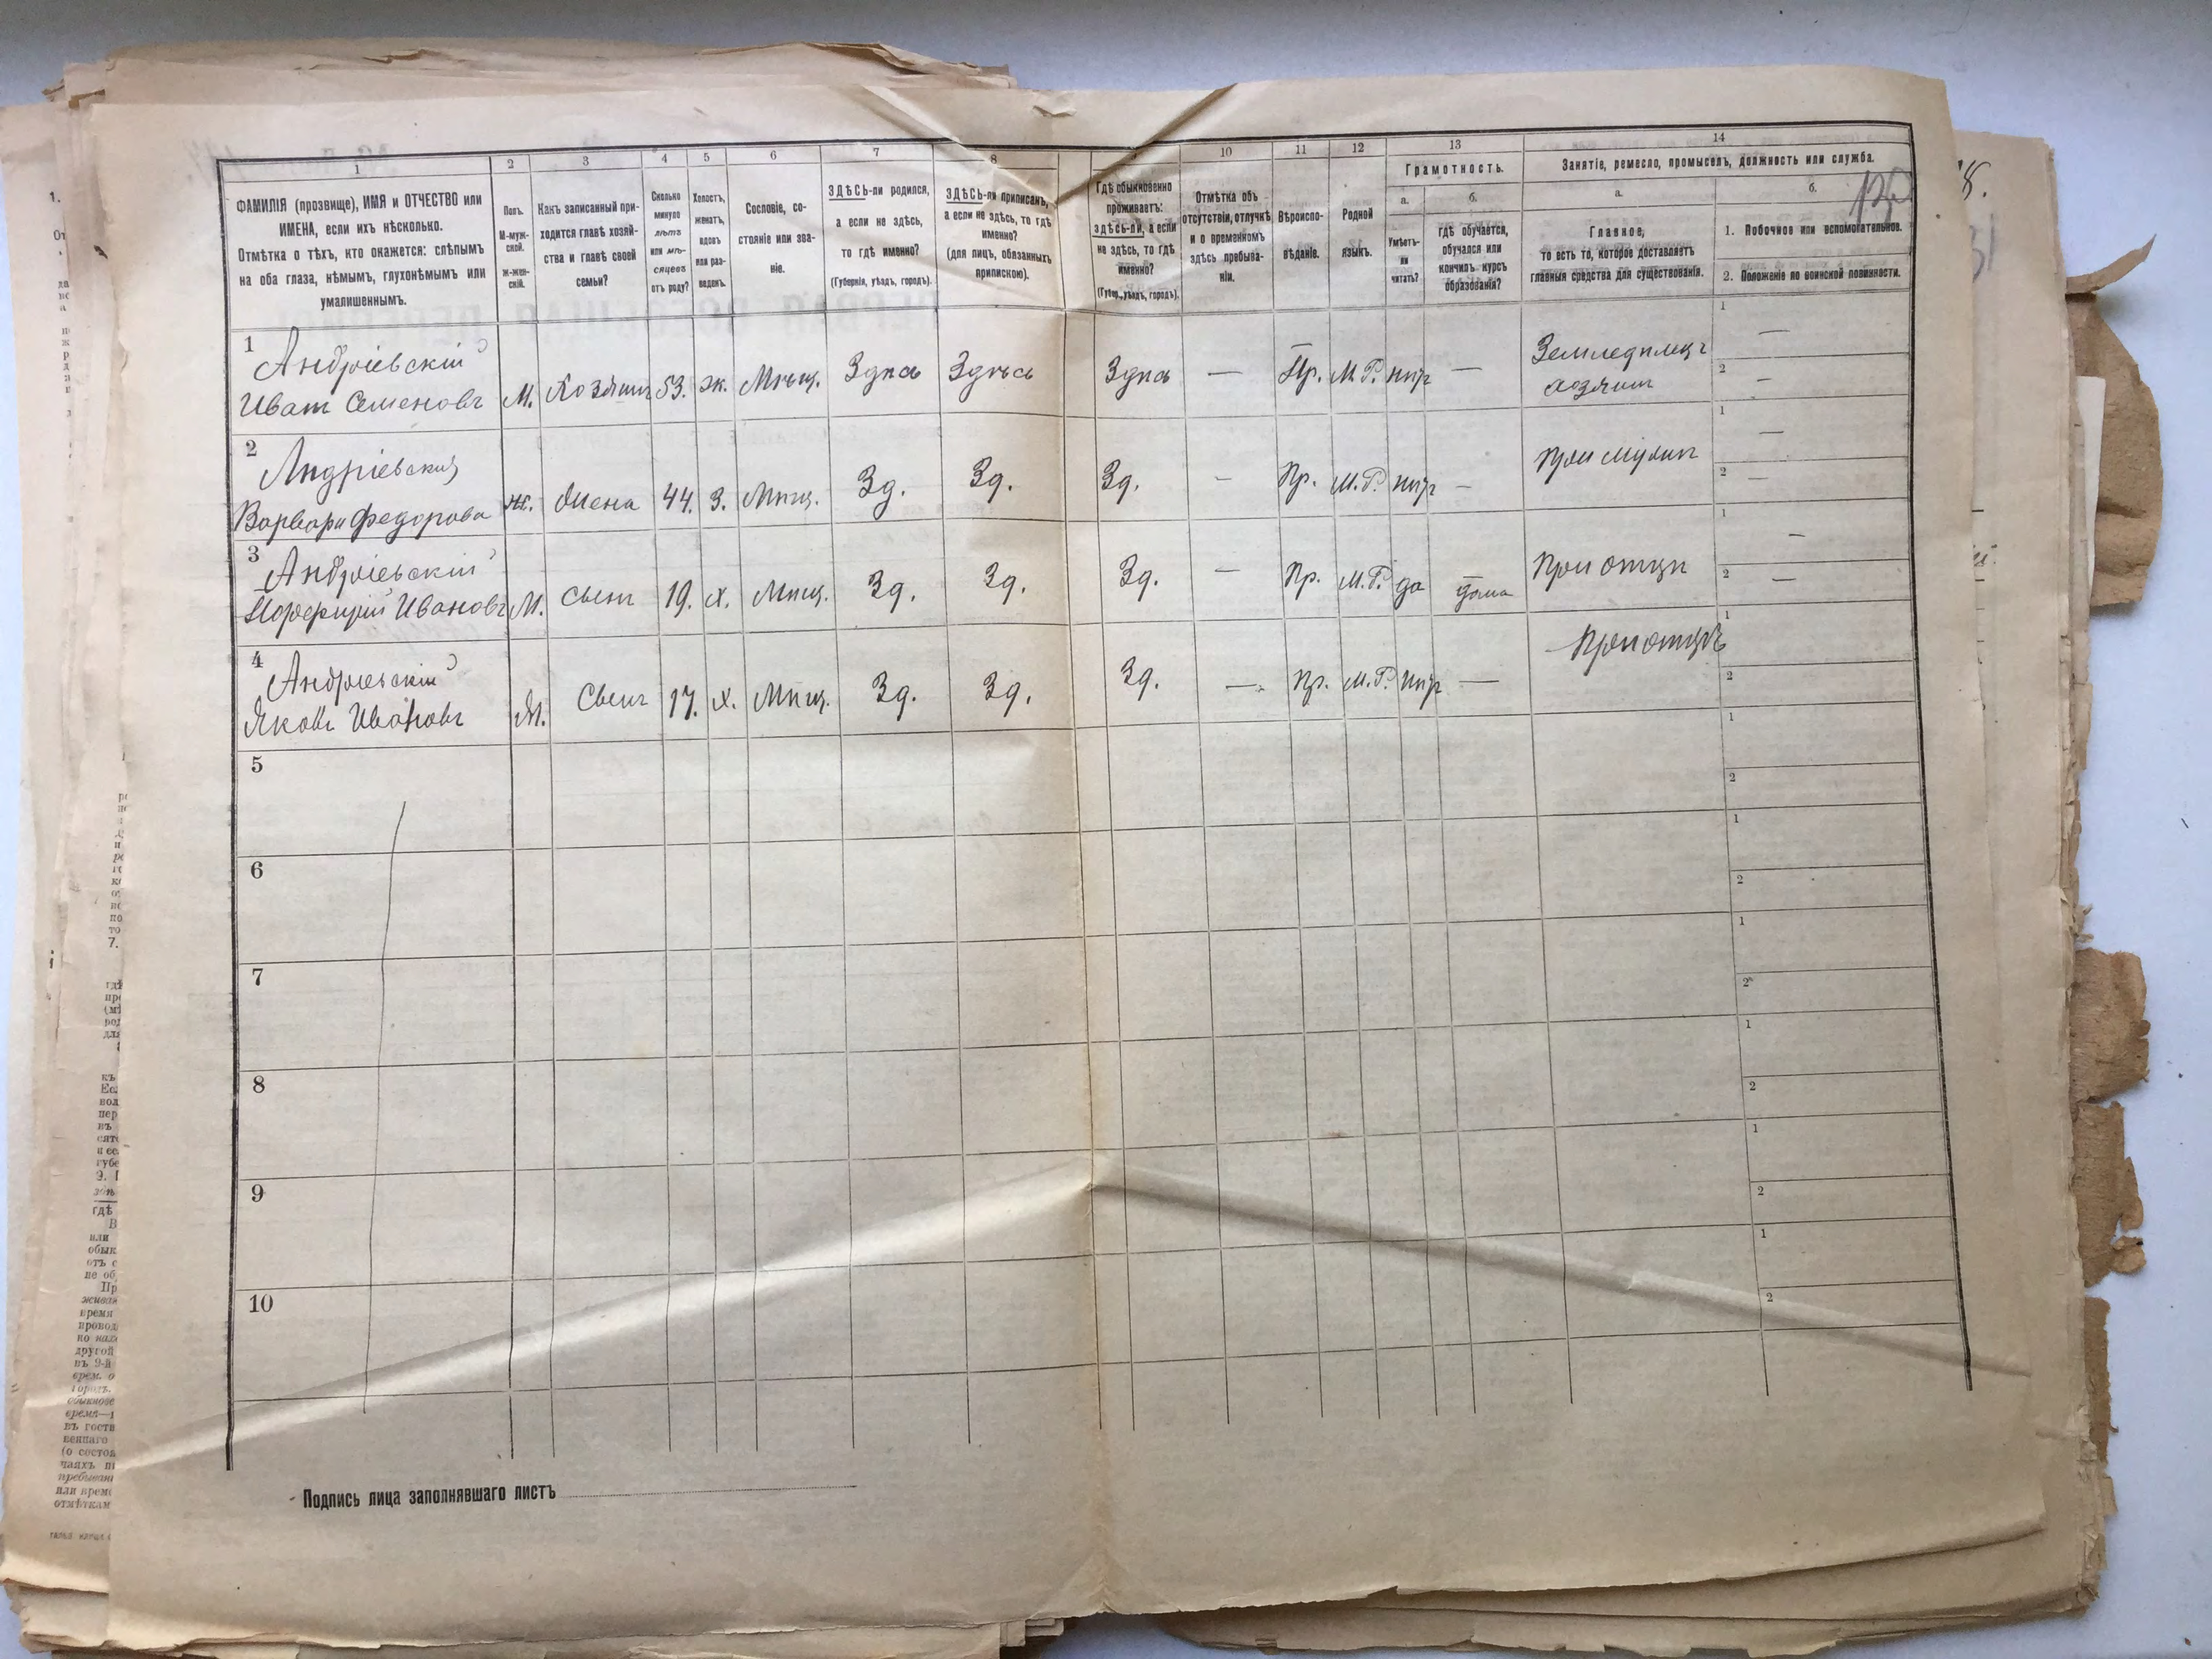 1
ФАМИЛІЯ (прозвище), ИМЯ и ОТЧЕСТВО или
ИМЕНА, если ихъ нѣсколько.
Отмѣтка о тѣхъ, кто окажется: слѣпымъ
на оба глаза, нѣмымъ, глухонѣмымъ или
умалишеннымъ.
2
Полъ.
М-муж-
ской.
ж-жен-
скій.
3
Какъ записанный при-
ходится главѣ хозяй-
ства и главѣ своей
семьи?
4
Сколько
минуло
лѣтъ
или мѣ-
сяцевъ
отъ роду?
5
Холостъ,
женатъ,
вдовъ
или раз-
веденъ.
6
Сословіе, со-
стояніе или зва-
ніе.
7
ЗДѢСЬ-ли родился,
а если не здѣсь,
то гдѣ именно?
(Губернія, уѣздъ, городъ).
8
ЗДѢСЬ-ли приписанъ,
а если не здѣсь, то гдѣ
именно?
(для лицъ, обязанныхъ
припискою).
Гдѣ обыкновенно
проживаетъ:
здѣсь-ли, а если
не здѣсь, то гдѣ
именно?
(Губер., уѣздъ, городъ).
10
Отмѣтка объ
отсутствіи, отлучкѣ
и о временномъ
здѣсь пребыва-
ніи.
11
Вѣроиспо-
вѣданіе.
12
Родной
языкъ.
13
Грамотность.
а.
Умѣетъ-
ли
читать?
б.
гдѣ обучается,
обучался или
кончилъ курсъ
образованія?
14
Занятіе, ремесло, промыселъ, должность или служба.
а.
Главное,
то есть то, которое доставляетъ
главныя средства для существованія.
б.
1. Побочное или вспомогательное.
2. Положеніе по воинской повинности.
1
Андріевскій
Иванъ Семеновъ
М. Хозяинъ 53. ж. Мѣщ. Здѣсь Здѣсь Здѣсь — Пр. М.Р. нѣтъ —
Земледѣлецъ
хозяинъ
1 —
2 —
2
Андріевский
Варвара Федорова
ж. Жена 44. З. Мѣщ. Зд. Зд. Зд. — Пр. М.Р. нѣтъ —
при мужѣ
1 —
2 —
3
Андріевскій
Порфирій Ивановъ
М. Сынъ 19. х. Мѣщ. Зд. Зд. Зд. — Пр. М.Р. да дома
При отцѣ
1 —
2 —
4
Андріевскій
Яковъ Ивановъ
М. Сынъ 17. х. Мѣщ. Зд. Зд. Зд. — Пр. М.Р. нѣтъ —
При отцѣ
1
2
5
1
2
6
1
2
7
1
2
8
1
2
9
1
2
10
1
2
Подпись лица заполнявшаго листъ